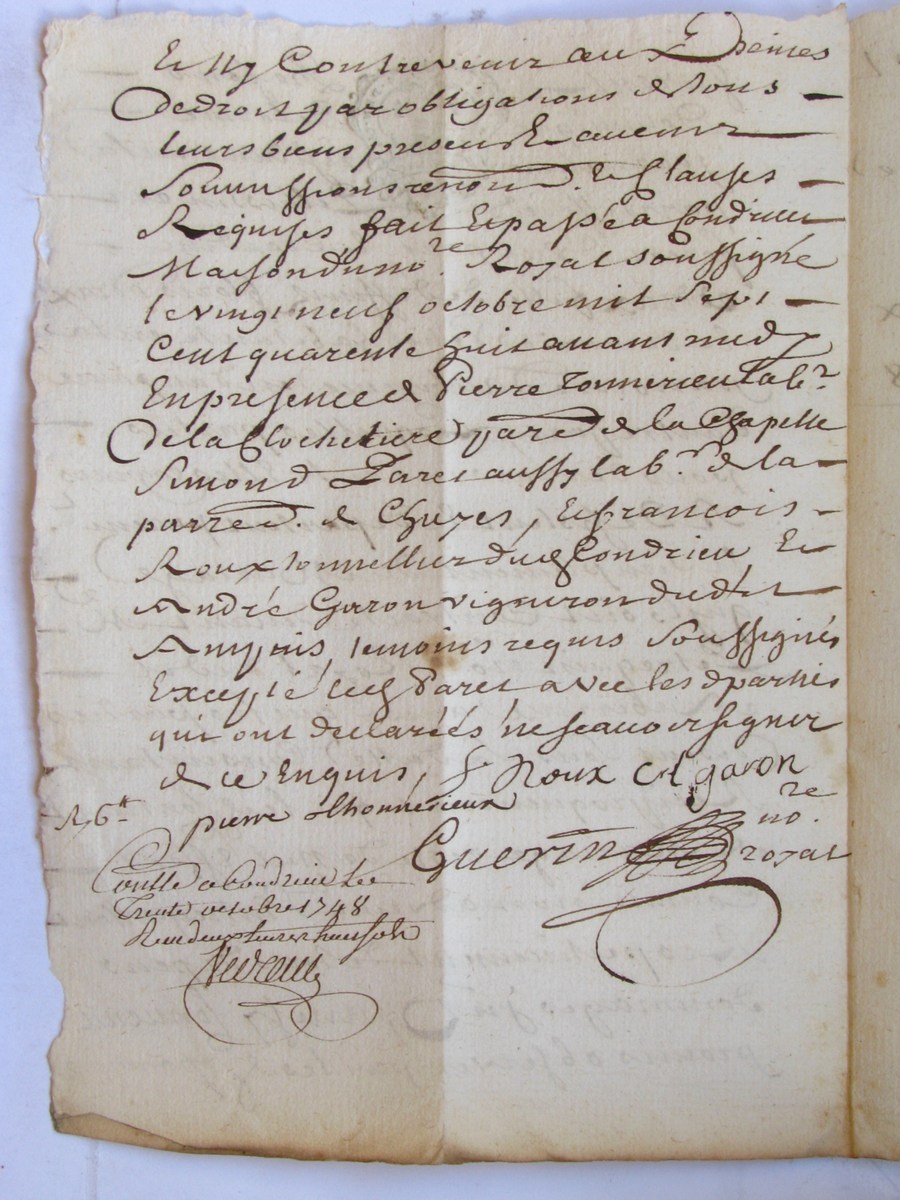 Et ny Contrevenir aux peines
De droit par obligations de tous
leurs biens presens Et avenir
Soumissions renond. Et Clauses
Requises fait Et passé a Condrieu
Maison du no.re Royal soussigné
le vingt neuf octobre mil sept
Cent quarente huit avant midy
En presence de Pierre Lab.r
De la Clochetiere parr.e de la Chapelle
Simond Paret aussy lab.r de la
parre. de Chuyes, Et francois
Roux tonnellier dud Condrieu Et
André Garon vigneron dudit
Ampuis temoins requis Soussignés
Excepté led Paret avec les d parties
qui ont declarées ne scavoir signer
de ce Enquis, f Roux A garon
R 6tt pierre thonnerieux
no.re
Guerin royal
Con.llé a Condrieu Le
Trente octobre 1748
Receu deux livres huit sols